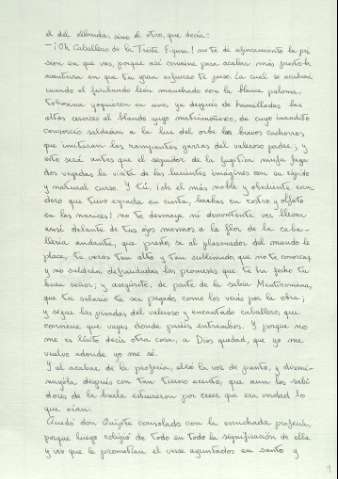 el del albarda, sino el otro, que decía:
—¡Oh Caballero de la Triste Figura! no te dé afincamiento la pri
sión en que vas, porque así conviene para acabar más presto la
aventura en que tu gran esfuerzo te puso. La cual se acabará
cuando el furibundo león manchado con la blanca paloma
tobosina yoguieren en uno, ya después de humilladas las
altas cervices al blando yugo matrimoñesco; de cuyo inaudito
consorcio saldrán a la luz del orbe los bravos cachorros,
que imitarán las rampantes garras del valeroso padre; y
esto será antes que el seguidor de la fugitiva ninfa faga
dos vegadas la visita de las lucientes imágines con su rápido
y natural curso. Y tú, ¡oh el más noble y obediente escu
dero que tuvo espada en cinta, barbas en rostro y olfato
en las narices! no te desmaye ni descontente ver llevar
ansí delante de tus ojos mesmos a la flor de la caba-
llería andante; que presto, si al plasmador del mundo le
place, te verás tan alto y tan sublimado que no te conozcas
y no saldrán defraudadas las promesas que te ha fecho tu
buen señor; y asegúrote, de parte de la sabia Mentironiana,
que tu salario te sea pagado, como lo verás por la obra;
y sigue las pisadas del valeroso y encantado caballero, que
conviene que vayas donde paréis entrambos. Y porque no
me es lícito decir otra cosa, a Dios quedad, que yo me
vuelvo adonde yo me sé.
Y al acabar de la profecía, alzó la voz de punto, y dismi-
nuyóla después con tan tierno acento, que aun los sabi
dores de la burla estuvieron por creer que era verdad lo
que oían.
Quedó don Quijote consolado con la escuchada profecía,
porque luego coligió de todo en todo la significación de ella
y vio que le prometían el verse ayuntados en santo y